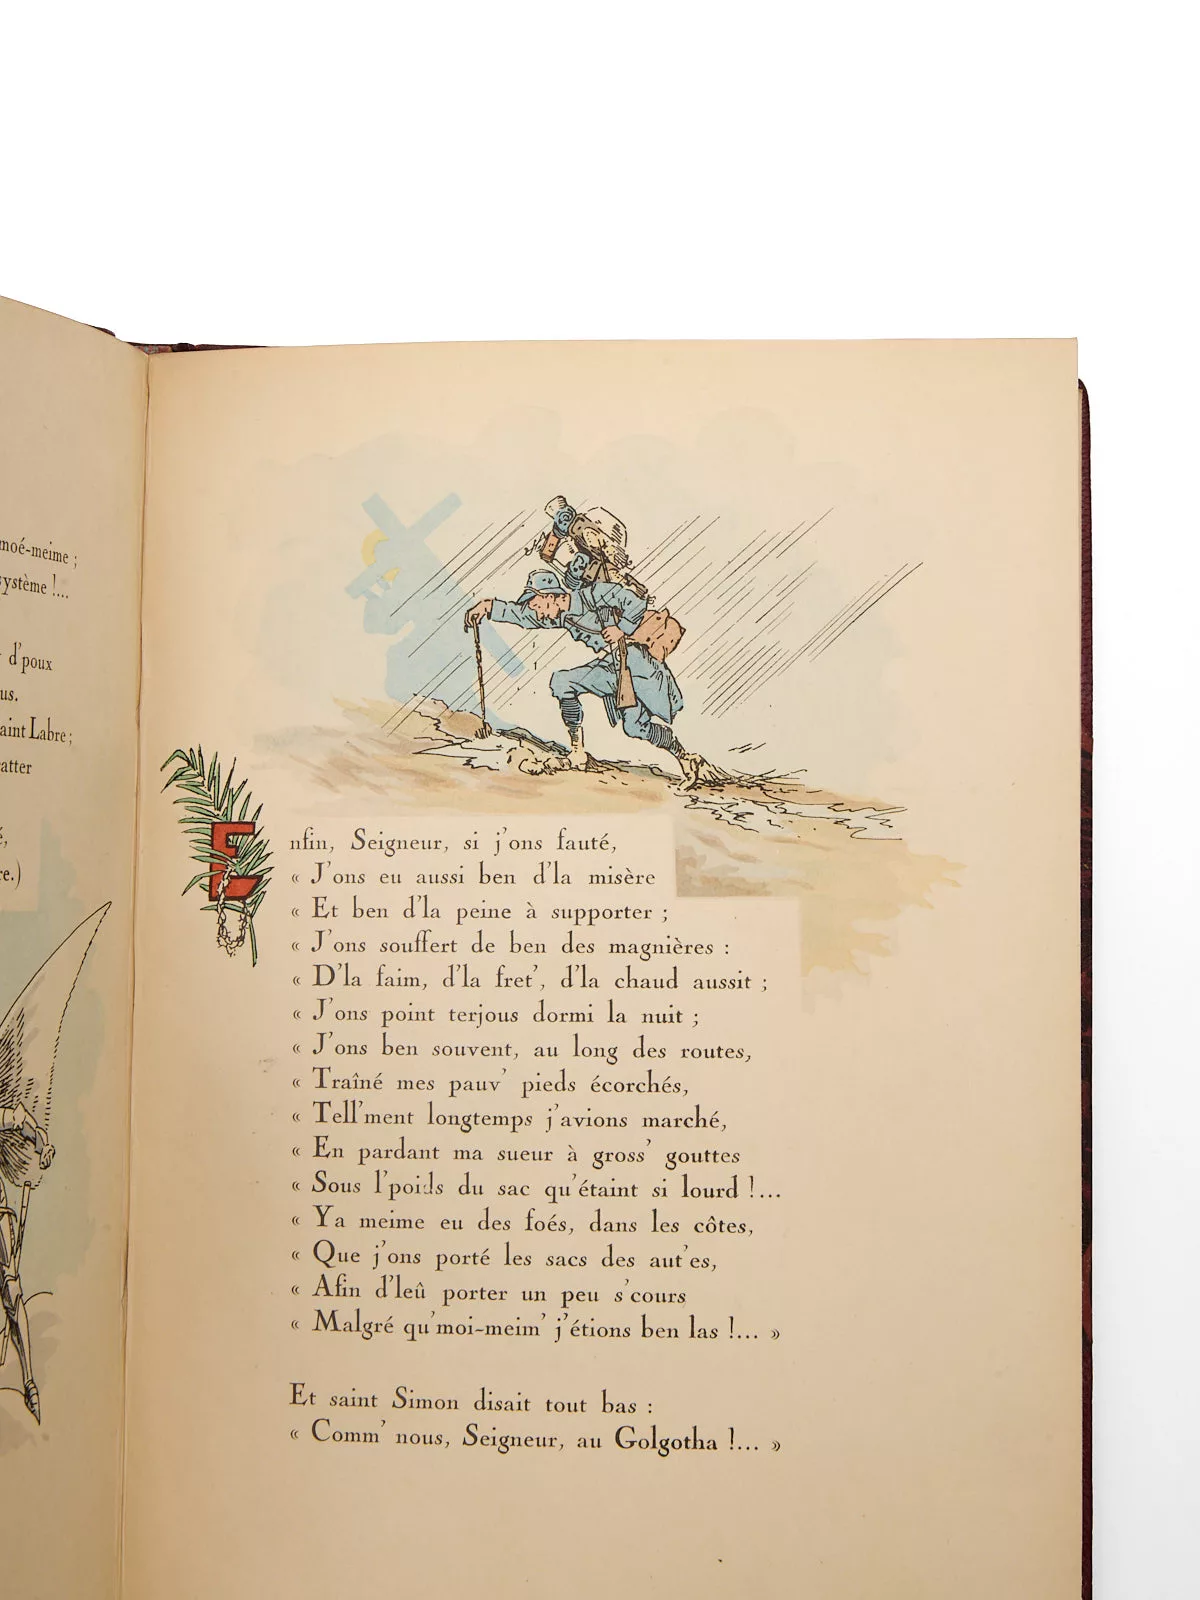 moé-meime ;
système !...
d'poux
us.
aint Labre ;
atter
é,
re.)
Enfin, Seigneur, si j'ons fauté,
« J'ons eu aussi ben d'la misère
« Et ben d'la peine à supporter ;
« J'ons souffert de ben des magnières :
« D'la faim, d'la fret', d'la chaud aussit ;
« J'ons point terjous dormi la nuit ;
« J'ons ben souvent, au long des routes,
« Traîné mes pauv' pieds écorchés,
« Tell'ment longtemps j'avions marché,
« En pardant ma sueur à gross' gouttes
« Sous l'poids du sac qu'étaint si lourd !...
« Ya meime eu des foés, dans les côtes,
« Que j'ons porté les sacs des aut'es,
« Afin d'leû porter un peu s'cours
« Malgré qu'moi-meim' j'étions ben las !... »
Et saint Simon disait tout bas :
« Comm' nous, Seigneur, au Golgotha !... »